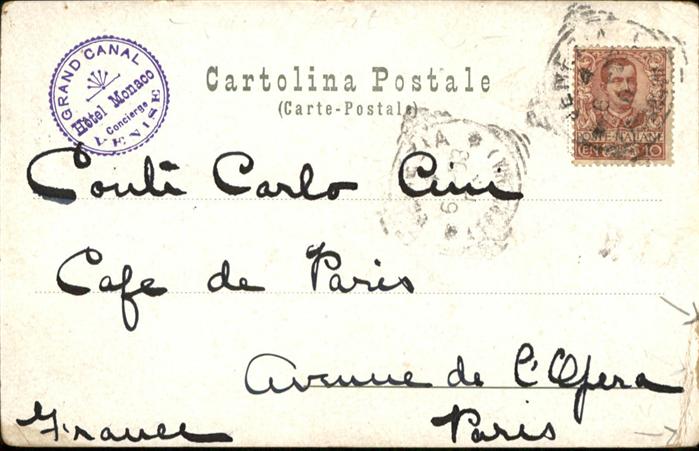 GRAND CANAL
Hôtel Monaco
Concierge
VENISE
Cartolina Postale
(Carte-Postale)
POSTE ITALIANE
10
Conti Carlo Cini
Cafe de Paris
Avenue de L'Opera
France Paris